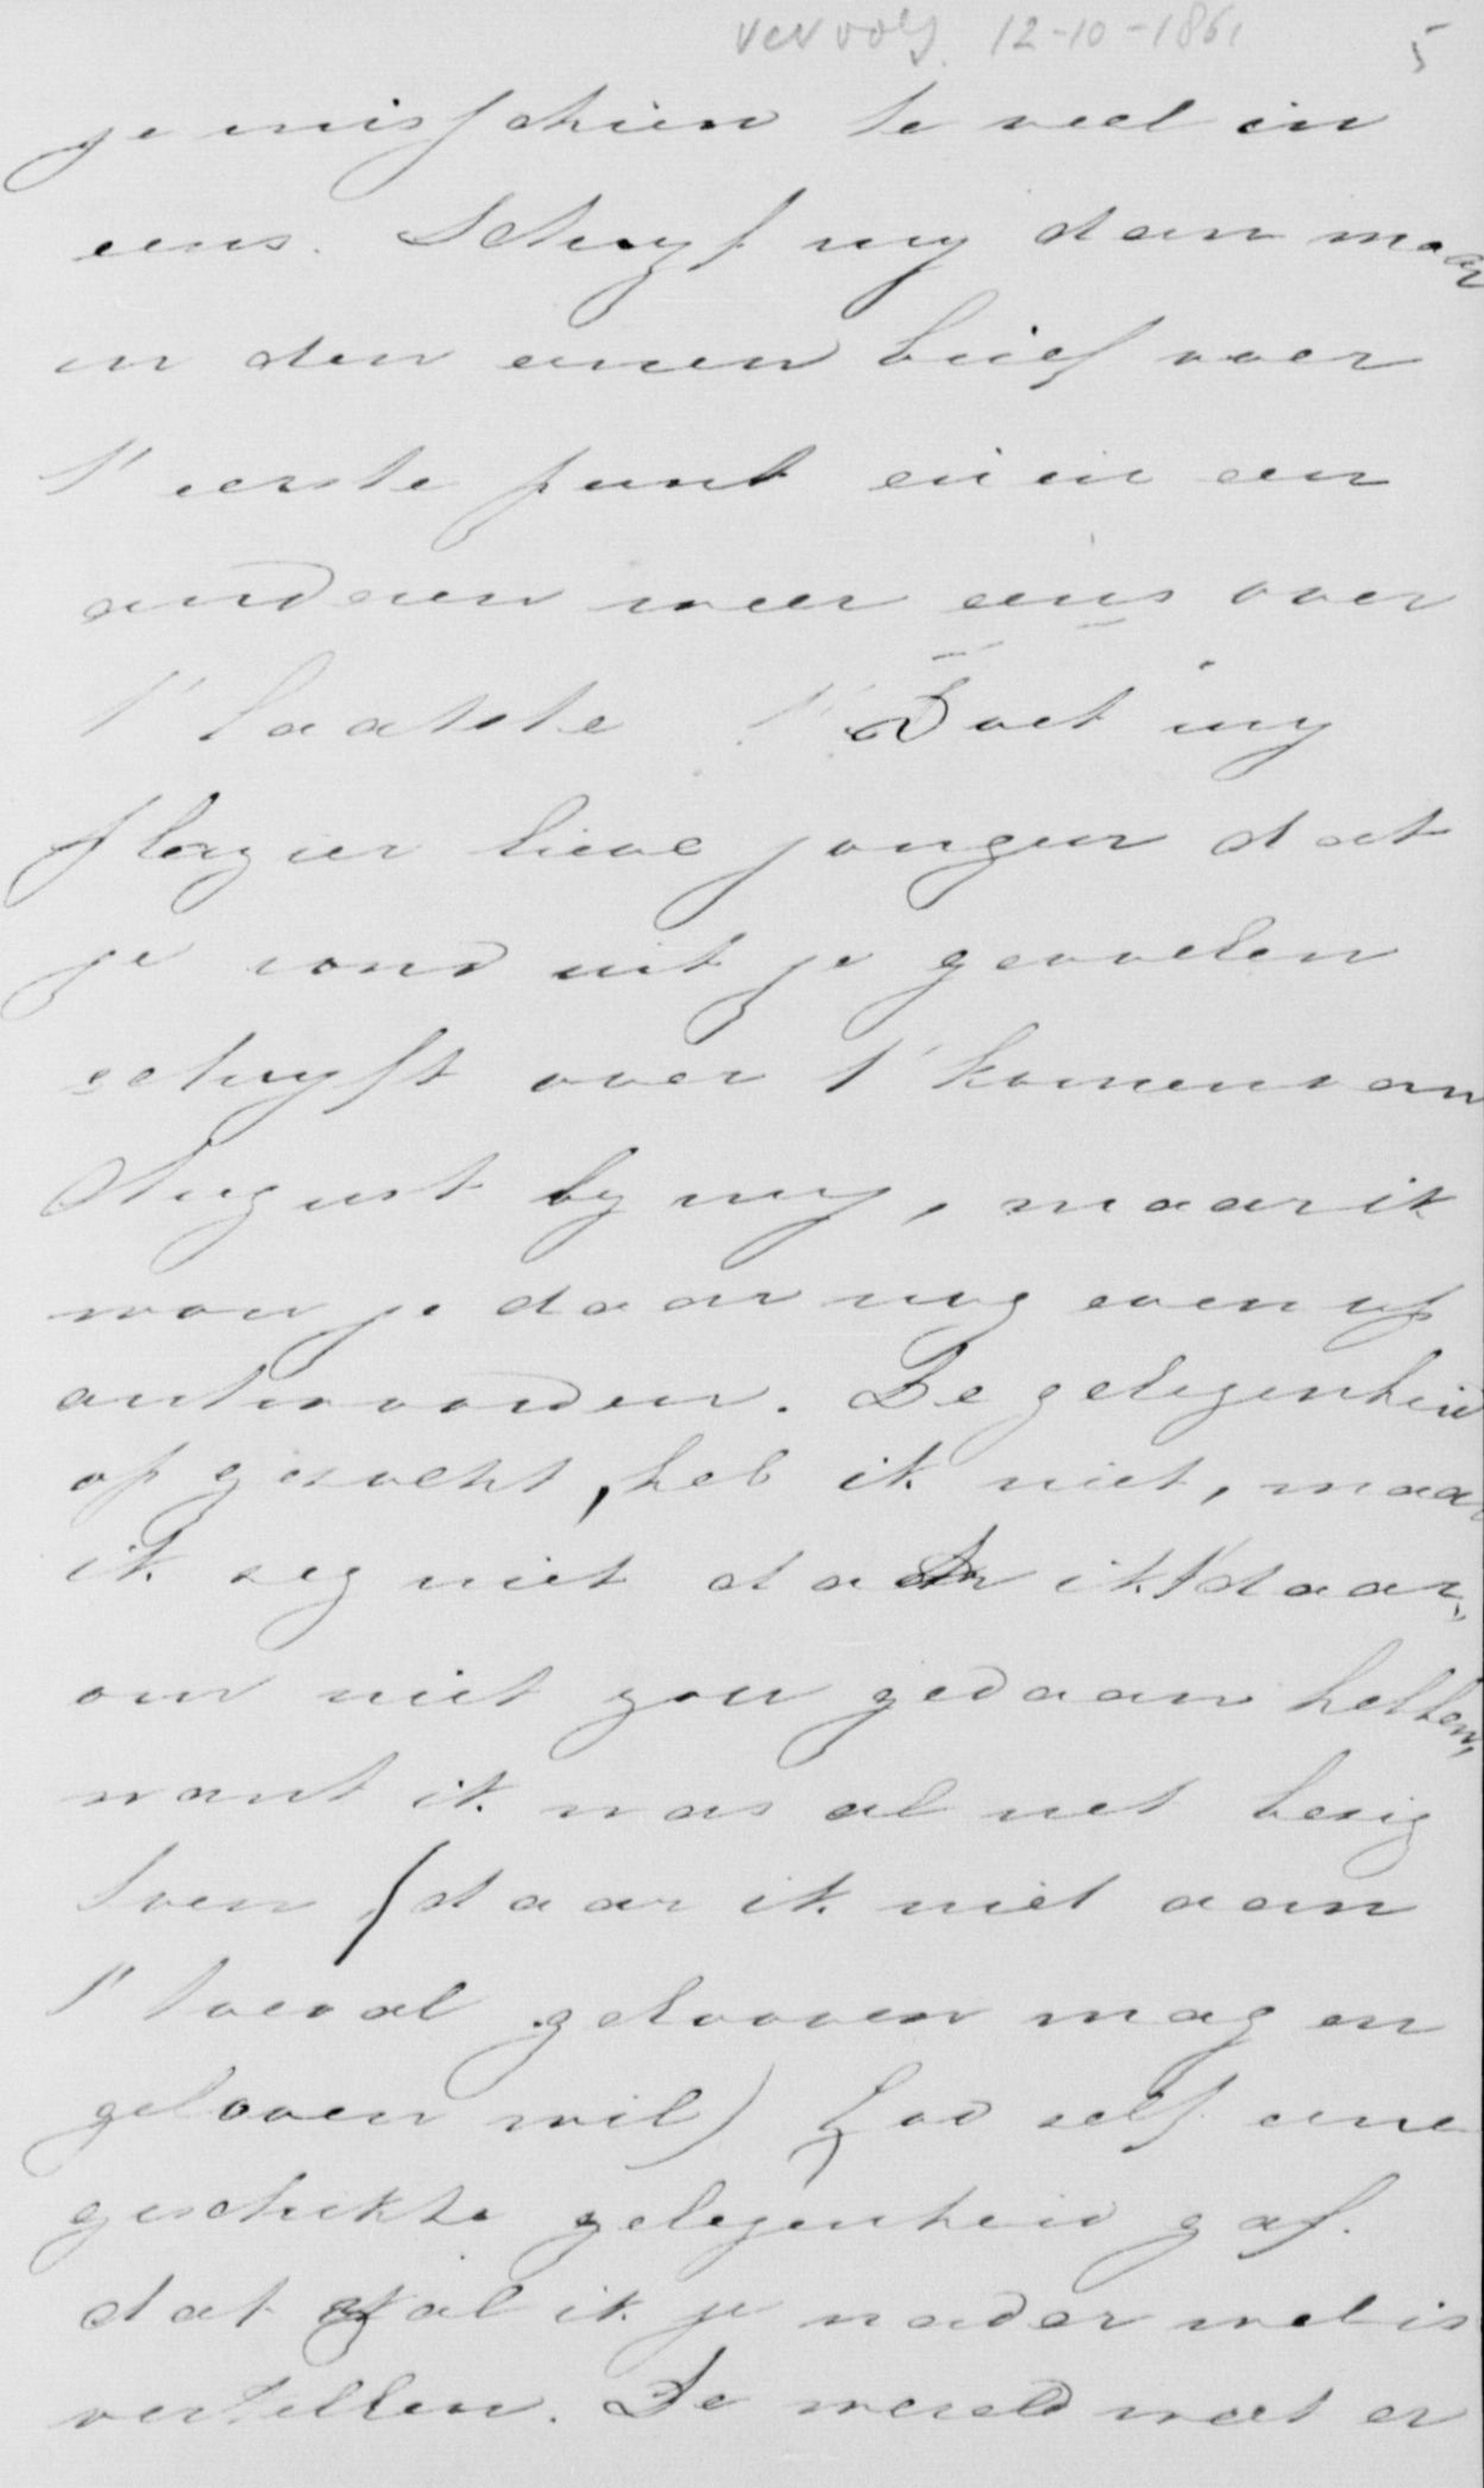 vervolg. 12-10-1861 5
je misschien te veel in
eens. Schryf my dan maar
in den eenen brief over
t' eerste punt en in een
anderen weer eens over
t' laatste t' Doet my
plezier lieve jongen dat
je rond uit je gevoelen
schryft over t' komen van
August by my, maar ik
wou je daar nog even op
antwoorden. De gelegenheid
op gezocht, heb ik niet, maar
ik zeg niet dat ik t' daar,
om niet zou gedaan hebben,
want ik was al net bezig
toen (daar ik niet aan
t' toeval gelooven mag en
gelooven wil) God zelf eene
geschikte gelegenheid gaf.
dat zal ik je nader wel is
vertellen. De wereld met er